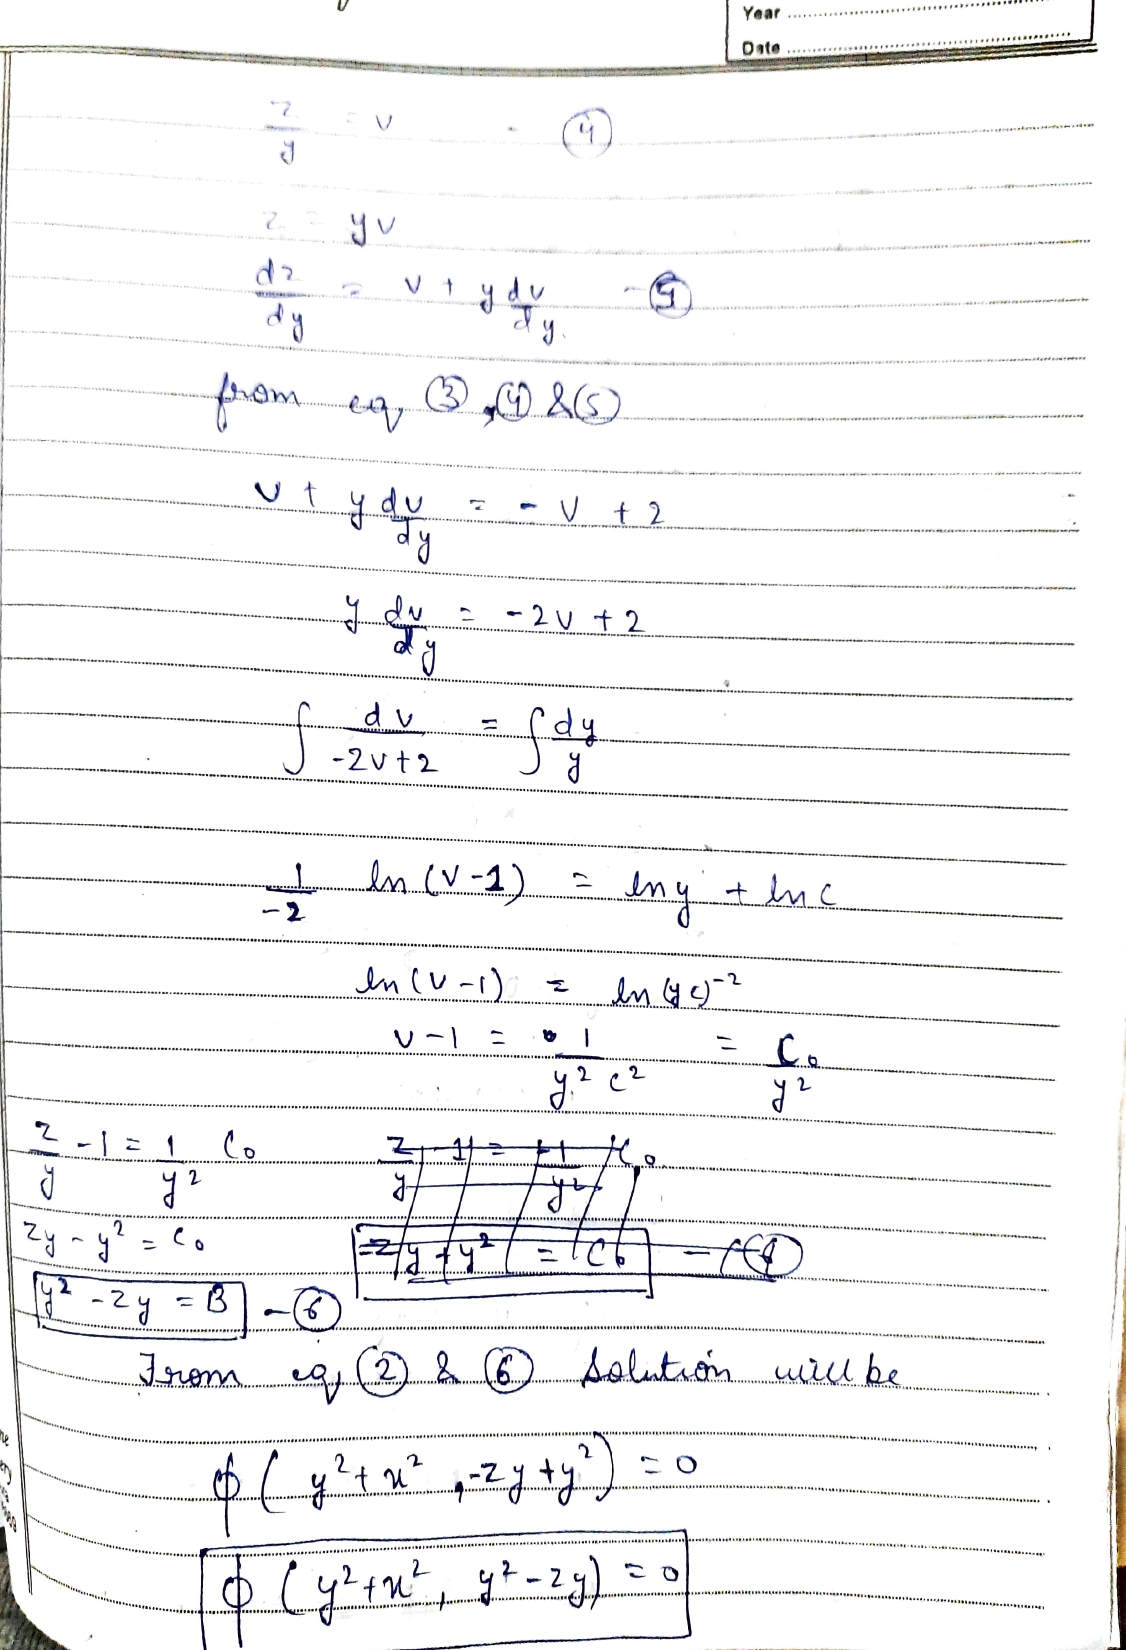 Year
Date
z/y = v - (4)
z = yv
dz/dy = v + y dv/dy. - (5)
from eq (3), (4) & (5)
v + y dv/dy = - v + 2
y dv/dy = -2v + 2
∫ dv/-2v+2 = ∫ dy/y
1/-2 ln (v-1) = lny + lnc
ln (v-1) = ln (yc)⁻²
v-1 = 1/y² c² = C₀/y²
z/y - 1 = 1/y² C₀
zy - y² = C₀
y² - zy = B - (6)
From eq (2) & (6) Solution will be
ϕ ( y² + x² , -zy + y² ) = 0
ϕ ( y² + x² , y² - zy ) = 0